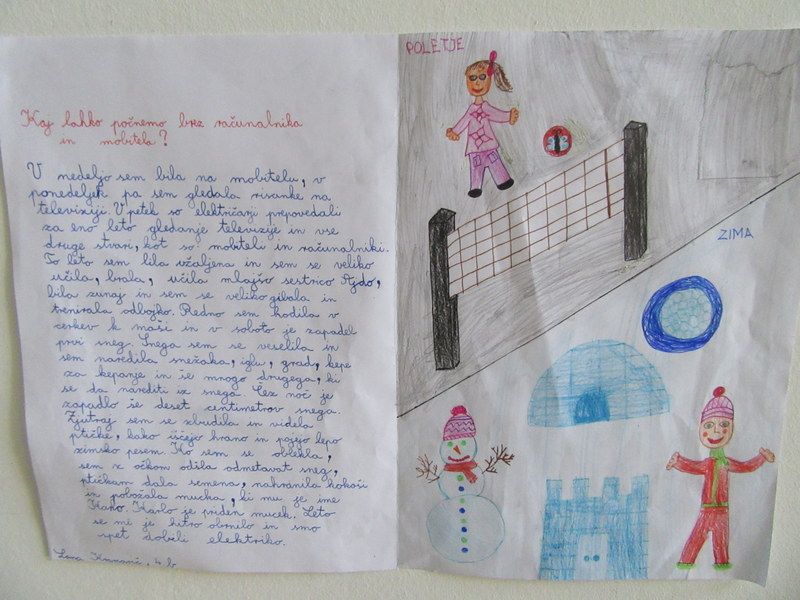 Kaj lahko počnemo brez računalnika
in mobitela?
V nedeljo sem bila na mobitelu, v
ponedeljek pa sem gledala risanke na
televiziji. V petek so električarji prepovedali
za eno leto gledanje televizije in vse
druge stvari, kot so mobiteli in računalniki.
To leto sem bila užaljena in sem se veliko
učila, brala, učila mlajšo sestrico Ajdo,
bila zunaj in sem se veliko gibala in
trenirala odbojko. Redno sem hodila v
cerkev k maši in v soboto je zapadel
prvi sneg. Snega sem se veselila in
sem naredila snežaka, iglu, grad, kepe
za kepanje in še mnogo drugega, ki
se da narediti iz snega. Čez noč je
zapadlo še deset centimetrov snega.
Zjutraj sem se zbudila in videla
ptičke, kako iščejo hrano in pojejo lepo
zimsko pesem. Ko sem se oblekla,
sem z očkom odila odmetavat sneg,
ptičkam dala semena, nahranila kokoši
in pobožala mucka, ki mu je ime
Karlo. Karlo je priden mucek. Leto
se mi je hitro obrnilo in smo
spet dobili elektriko.
4. b
POLETJE
ZIMA